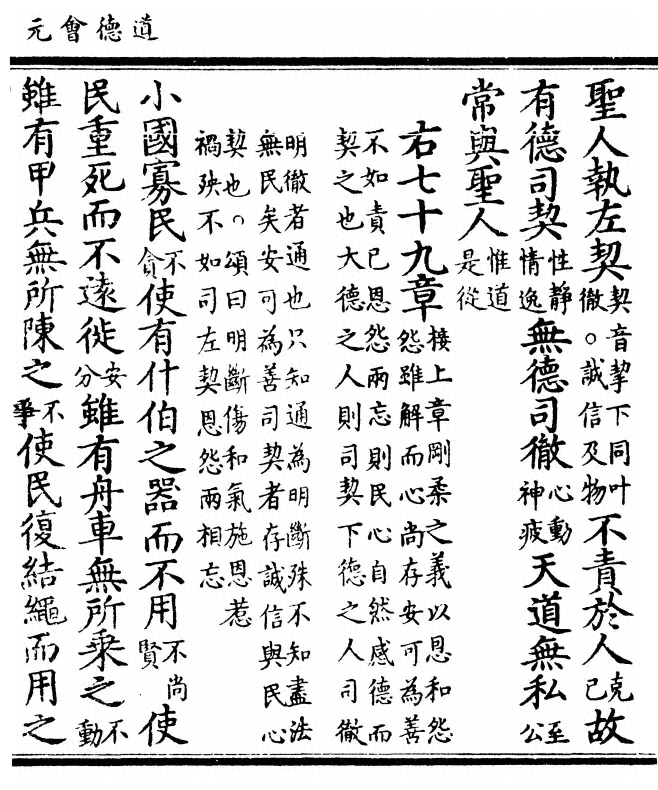 道德會元
聖人執左契契音挈下同叶徹。誠信及物不責於人克己故
有德司契性靜情逸無德司徹心動神疲天道無私至公
常與聖人惟道是從
右七十九章接上章剛柔之義以恩和怨怨雖解而心尚存安可為善
不如責已恩怨兩忘則民心自然感德而
契之也大德之人則司契下德之人司徹
明徹者通也只知通為明斷殊不知盡法
無民矣安可為善司契者存誠信與民心
契也。頌曰明斷傷和氣施恩惹
禍殃不如司左契恩怨兩相忘
小國寡民不貪使有什伯之器而不用不尚賢使
民重死而不遠徙安分雖有舟車無所乘之不動
雖有甲兵無所陳之不爭使民復結繩而用之